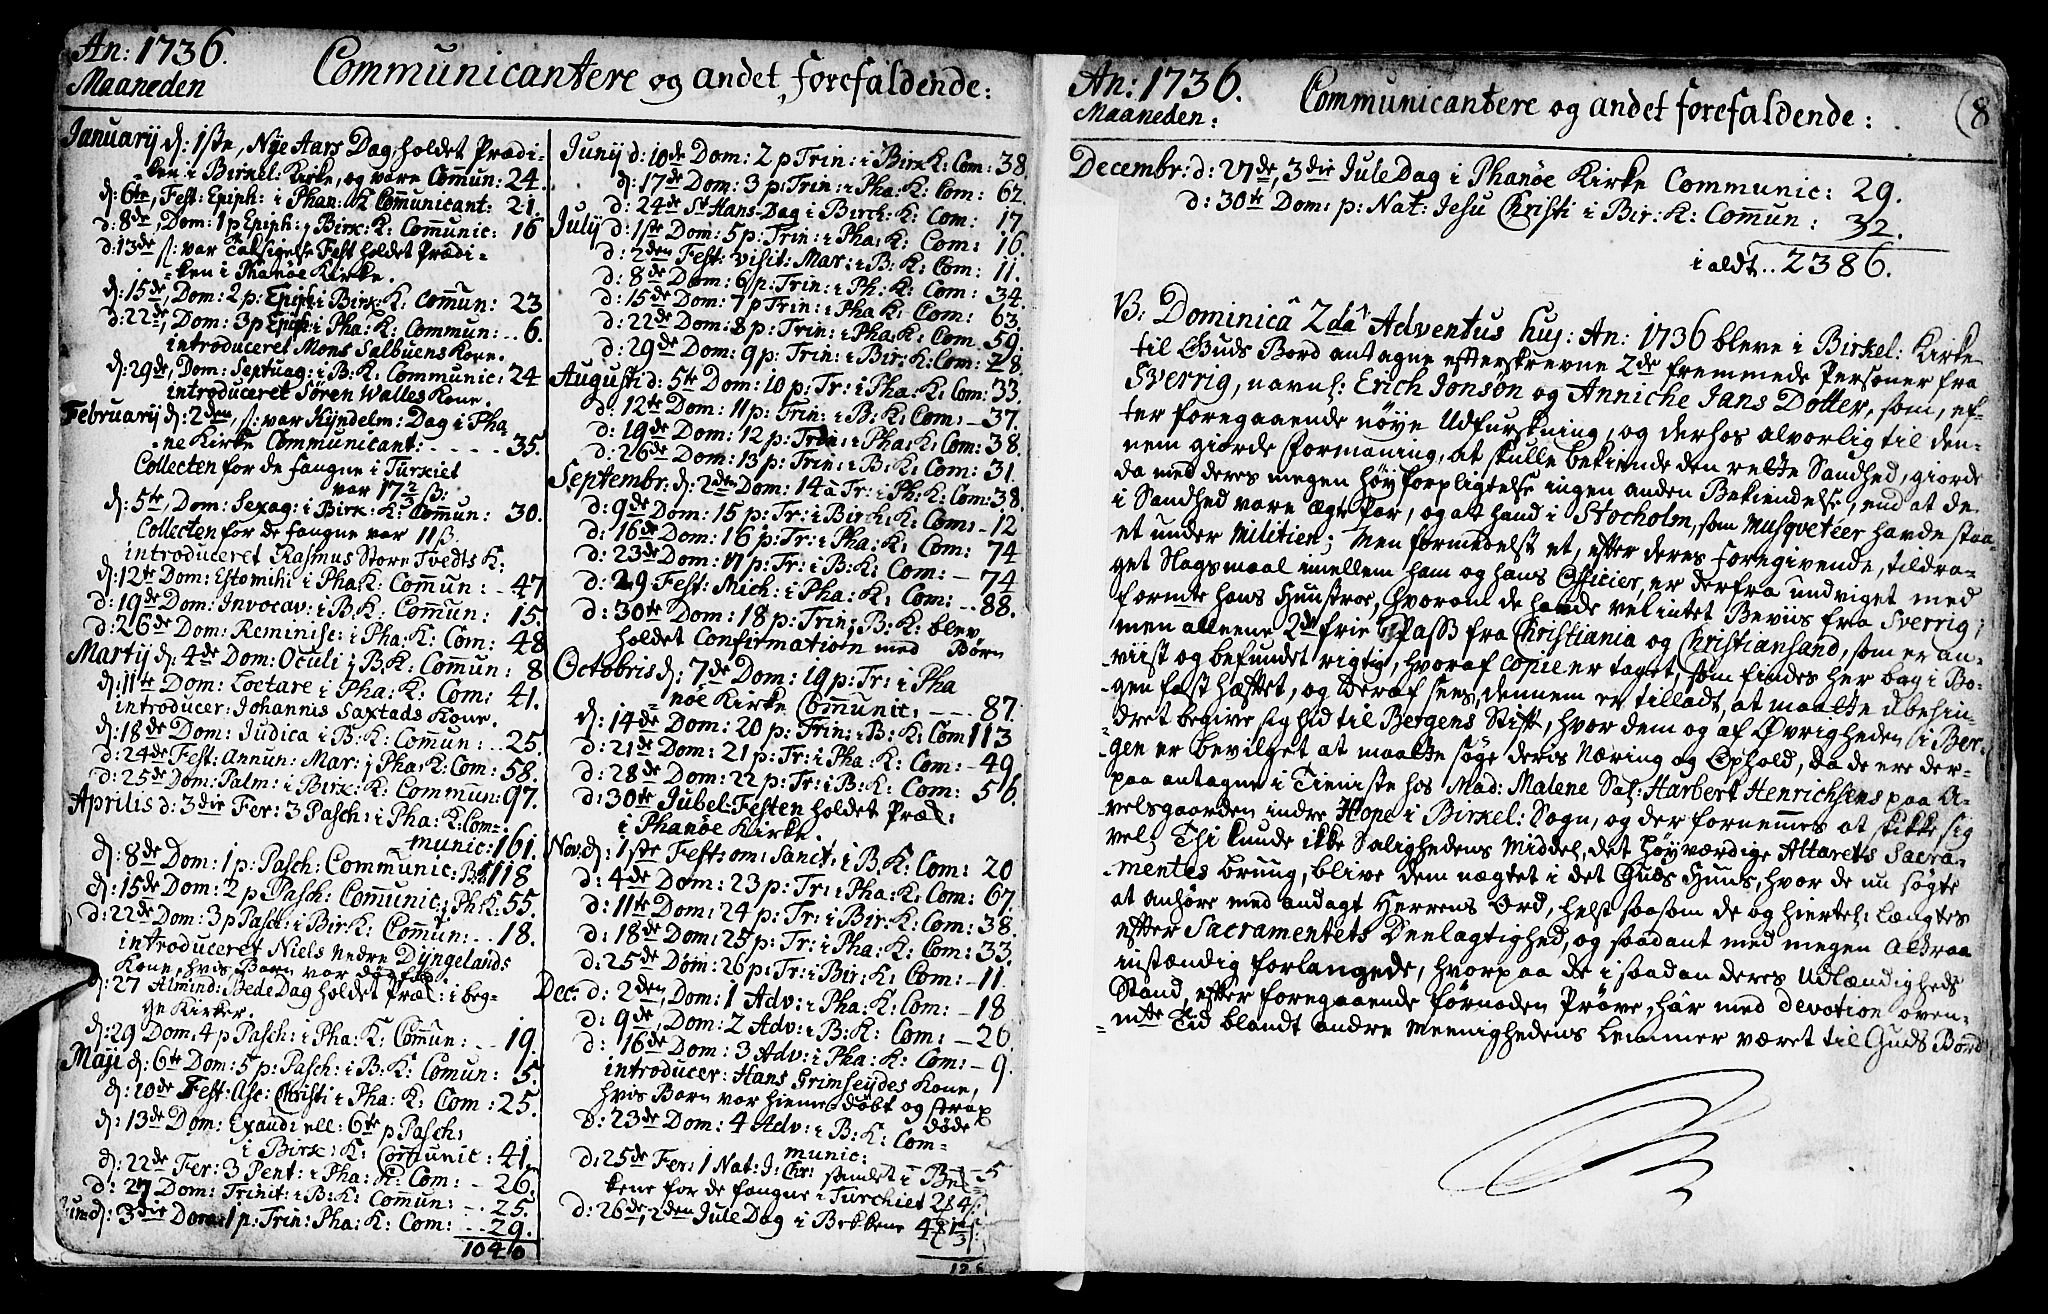 An: 1736.
Maaneden
Communicantere og andet forefaldende:
Januarij d: 1ste, Nye Aars Dag, holdet Prædi-
ken i Birkel: Kirke, og vare Comun: 24.
d: 6te, Fest: Epiph: i Phan: K Comunicant: 21.
d: 8de, Dom: 1 p Epiph: i Birk: K: Comunic: 16
d: 13de /: var Taksigelse Fest holdet Prædi-
ken i Phanöe Kirke.
d: 15de, Dom: 2 p: Epiph: i Birk: K: Comun: 23
d: 22de, Dom: 3 p Epiph: i Pha: K: Commun: .. 6.
introduceret Mons Salbuens Kone.
d: 29de, Dom: Septuag: i B: K: Communic: 24
introduceret Sören Walles Kone.
Februarij d: 2den, /: var Kyndelm: Dag i Pha
ne Kirke Communicant: - - - - - 35.
Collecten for de fangne i Türkiet
var 17 2/3 ß:
d: 5te, Dom: Sexag: i Birk: K: Comun: 30.
Collecten for de fangne var 11 ß.
introduceret Rasmus Store Tvedts K:
d: 12te Dom: Estomihi i Pha: K: Comun: - 47
d: 19de Dom: Invocav: i B: K: Comun: 15.
d: 26de Dom: Reminisc: i Pha: K: Com: 48
Martij d: 4de Dom: Oculi i B: K: Comun: 8
d: 11te Dom: Lætare i Pha: K: Com: 41.
introducer: Johannis Saxtads Kone.
d: 18de Dom: Judica i B: K: Comun: .. 25.
d: 24de Fest: Annun: Mar: i Pha: K: Com: 58.
d: 25de Dom: Palm: i Birk: K: Commun: 97.
Aprilis d: 3die Fer: 3 Pasch: i Pha: K: Com-
munic: 161.
d: 8de Dom: 1 p: Pasch: Communic: B: K: 118
d: 15de Dom: 2 p: Pasch: Comunic: i Ph: K: 55.
d: 22de Dom: 3 p Pasch: i Birk: K: Comun: .. 18.
introduceret Niels Nedre Dyngelands
Kone, hvis Barn var dödfød.
d: 27 Almind: Bede Dag holdet Præd: i beg-
ge Kirker.
d: 29 Dom: 4 p Pasch: i Pha: K: Comun: .. 19.
Maji d: 6te Dom: 5 p: Pasch: i B: K: Comun: 5.
d: 10de Fest: Asc: Christi i Pha: K: Com: 25.
d: 13de Dom: Exaudi ell: 6te p Pasch:
i Birk: K: Comunic: 41.
d: 22de Fer: 3 Pent: i Pha: K: Com: - 26.
d: 27 Dom: Trinit: i B: K: Comun: .. 25.
Junij d: 3die Dom: 1 p: Trin: Pha: K: Com: .. 29.
1040
Junij d: 10de Dom: 2 p Trin: i Birk K: Com: 38.
d: 17de Dom: 3 p: Trin: i Pha: K: Com: 62.
d: 24de St Hans-Dag i Birch: K: Com: 17.
July d: 1ste Dom: 5 p: Trin: i Pha: K: Com: 16.
d: 2den Fest: visit: Mar: i B: K: Com: 11.
d: 8de Dom: 6 p: Trin: i Ph: K: Com: 34.
d: 15de Dom: 7 p Trin: i Pha K: Com: 63.
d: 22de Dom: 8 p: Trin: i Pha: K: Com. 59.
d: 29de Dom: 9 p: Trin: i Bir: K: Com: 28.
Augusti d: 5te Dom: 10 p: Tr: i Pha: K: Com: 33.
d: 12te Dom: 11 p: Trin: i B: K: Com: - 37.
d: 19de Dom: 12 p: Trin: i Pha: K: Com: 38.
d: 26de Dom: 13 p: Trin: i B: K: Com: 31.
Septembr: d: 2den Dom: 14 a Tr: i Ph: K: Com: 38.
d: 9de Dom: 15 p: Tr: i Birch: K: Com: - 12
d: 16de Dom: 16 p: Tr: i Pha: K: Com: 74
d: 23de Dom: 17 p: Tr: i B: K: Com: - 74
d: 29 Fest: Mich: i Pha: K: Com: .. 88.
d: 30te Dom: 18 p: Trin: i B: K: blev
holdet Confirmation med Börn
Octobris d: 7de Dom: 19 p: Tr: i Pha
nöe Kirke Comunic: - - - 87.
d: 14de Dom: 20 p: Trin: i B: K: Com 113
d: 21de Dom: 21 p: Tr: i Pha: K: Com: - 49.
d: 28de Dom: 22 p: Tr: i B: K: Com: 56.
d: 30te Jubel: Festen holdet Præd:
i Phanöe Kirke.
Nov. d: 1ste Fest: om: Sanct: i B: K: Com: 20
d: 4de Dom: 23 p: Tr: i Pha: K: Com: 67.
d: 11te Dom: 24 p: Tr: i Bir: K: Com: 38.
d: 18de Dom: 25 p: Tr: i Pha: K: Com: 33.
d: 25de Dom: 26 p: Tr: i Bir: K: Com: - 11.
Dec: d: 2den, Dom: 1 Adv: i Pha: K: Com: - 18
d: 9de, Dom: 2 Adv: i B: K: Com: - 26.
d: 16de Dom: 3 Adv: i Pha: K: Com: - 9.
introducer: Hans Grimseydes Kone,
hvis Barn var hiemedöbt og strax
döde
d: 23de Dom: 4 Adv: i B: K: Com-
munic:
d: 25de Fer: 1 Nat: J: Chr: samlet i Bek - 5
kene for de fangne i Turchiet
d: 26de, 2den Jule Dag i Bekkene
An: 1736.
Maaneden:
Communicantere og andet forefaldende:
(8
Decembr: d: 27de, 3die Jule Dag i Phanöe Kirke Communic: 29.
d: 30te Dom: p: Nat: Jesu Christi i Bir: K: Comun: 32.
i aldt .. 2386.
NB: Dominicâ 2dâ Adventus huj: An: 1736 bleve i Birkel: Kirke
til Guds Bord antagne efterskrevne 2de fremmede Personer fra
Sverrig, navnl: Erich Jonson og Anniche Jans Dotter, som, ef-
ter foregaaende nöye Udfurskning, og derhos alvorlig til den-
nem giorde formaning, at skulle bekiende den rette Sandhed, giorde
da med deres megen höy forpligtelse ingen anden Bekiendelse, end at de
i Sandhed vare Ægte Par, og at hand i Stocholm, som Musqveteer havde staa-
et under Militien; Men formedelst et, efter deres foregivende, tildra-
get Slagsmaal imellem ham og hans Officier, er derfra undviget med
formte hans Huustroe, hvorom de hafde vel intet Beviis fra Sverrig;
men alleene 2de frie Pass fra Christiania og Christiansand, som er an-
viist og befundet rigtig, hvoraf Copie er taget, som findes her bag i Bo-
gen fast hæftet, og deraf sees, dennem er tilladt, at maatte ubehin-
dret begive sig hid til Bergens Stift, hvor dem og af Øvrigheden i Ber-
gen er bevilget at maatte söge deris Næring og Ophold, da de ere der-
paa antagne i Tieniste hos Mad: Malene Sal: Harbert Henrichsens paa A-
velsgaarden indre Hope i Birkel: Sogn, og der fornemmes at skikke sig
vel; Thi kunde ikke Salighedens Middel, det höyværdige Altarets Sacra-
mentes brung, blive dem nægtet i det Guds Huus, hvor de nu søgte
at anhöre med andagt Herrens Ord, helst saasom de og hiertel: længtes
efter Sacramentets Deelagtighed, og saadant med megen aldraa
instændig forlangede, hvorpaa de i saadan deres Udlændigheds
Stand, efter foregaaende fornöden Pröve, har med devotion oven-
mte Tid blandt andre Meenighedens Lemmer været til Guds Bord